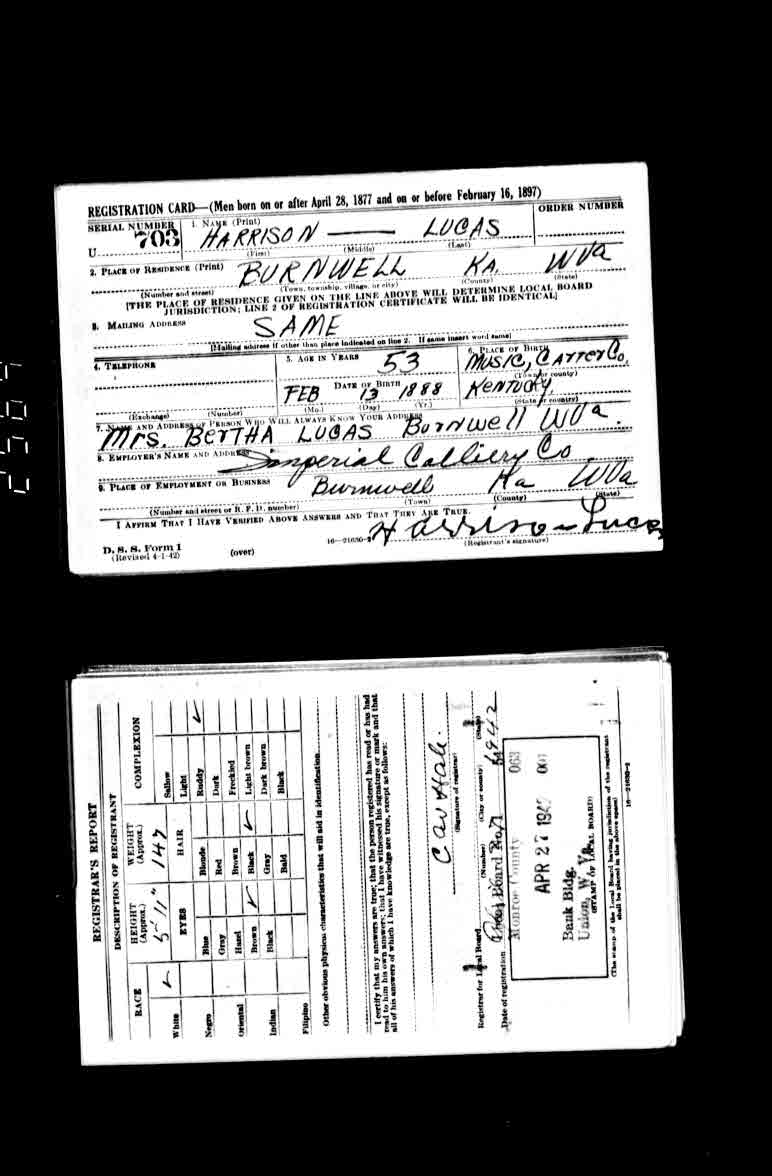 REGISTRATION CARD—(Men born on or after April 28, 1877 and on or before February 16, 1897)
SERIAL NUMBER 1. NAME (Print) ORDER NUMBER
U 703 HARRISON —— LUCAS
(First) (Middle) (Last)
2. PLACE OF RESIDENCE (Print) BURNWELL KA. WVa
(Number and street) (Town, township, village, or city) (County) (State)
[THE PLACE OF RESIDENCE GIVEN ON THE LINE ABOVE WILL DETERMINE LOCAL BOARD
JURISDICTION; LINE 2 OF REGISTRATION CERTIFICATE WILL BE IDENTICAL]
3. MAILING ADDRESS SAME
[Mailing address if other than place indicated on line 2. If same insert word same]
4. TELEPHONE 5. AGE IN YEARS 53 6. PLACE OF BIRTH
MUSIC, CARTER Co,
DATE OF BIRTH (Town or county)
FEB 13 1888 KENTUCKY,
(Exchange) (Number) (Mo.) (Day) (Yr.) (State or country)
7. NAME AND ADDRESS OF PERSON WHO WILL ALWAYS KNOW YOUR ADDRESS
Mrs. BERTHA LUCAS Burnwell WVa.
8. EMPLOYER'S NAME AND ADDRESS
Imperial Colliery Co
9. PLACE OF EMPLOYMENT OR BUSINESS
Burnwell Ka WVa
(Number and street or R. F. D. number) (Town) (County) (State)
I AFFIRM THAT I HAVE VERIFIED ABOVE ANSWERS AND THAT THEY ARE TRUE.
Harrison Lucas
D. S. S. Form 1 (over) 16—21630-2 (Registrant's signature)
(Revised 4-1-42)
REGISTRAR'S REPORT
DESCRIPTION OF REGISTRANT
RACE HEIGHT (Approx.) WEIGHT (Approx.) COMPLEXION
5' 11" 147
White ✓ EYES HAIR Sallow
Light
Negro Blue Blonde Ruddy ✓
Gray Red Dark
Oriental Hazel Brown Freckled
Brown ✓ Black ✓ Light brown
Indian Black Gray Dark brown
Filipino Bald Black
Other obvious physical characteristics that will aid in identification
I certify that my answers are true; that the person registered has read or has had
read to him his own answers; that I have witnessed his signature or mark and that
all of his answers of which I have knowledge are true, except as follows:
(Signature of registrar)
Registrar for Local Board
(Number) (City or county) (State)
Date of registration 1942
Local Board No. 1
Monroe County 063
APR 27 1942 001
Bank Bldg.
Union, W. Va.
(STAMP OF LOCAL BOARD)
(The stamp of the Local Board having jurisdiction of the registrant
shall be placed in the above space)
16—21630-2